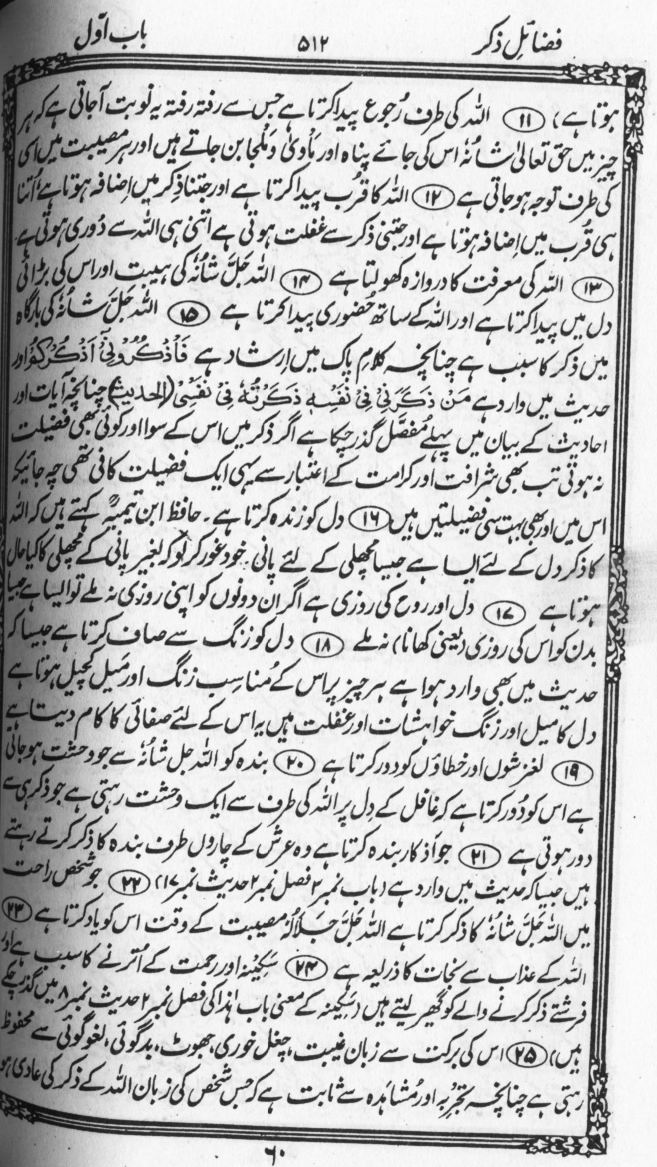 فضائل ذکر ۵۱۲ باب اوّل
ہوتا ہے) (۱۱) اللہ کی طرف رُجوع پیدا کرتا ہے جس سے رفتہ رفتہ یہ نوبت آجاتی ہے کہ ہر
چیز میں حق تعالیٰ شانُہٗ اس کی جائے پناہ اور مأویٰ و ملجا بن جاتے ہیں اور ہر مصیبت میں اسی
کی طرف توجہ ہوجاتی ہے (۱۲) اللہ کا قُرب پیدا کرتا ہے اور جتنا ذِکر میں اِضافہ ہوتا ہے اُتنا
ہی قُرب میں اِضافہ ہوتا ہے اور جتنی ذکر سے غفلت ہوتی ہے اتنی ہی اللہ سے دُوری ہوتی ہے
(۱۳) اللہ کی معرفت کا دروازہ کھولتا ہے (۱۴) اللہ جَلَّ شَانُہٗ کی ہیبت اور اس کی بڑائی
دل میں پیدا کرتا ہے اور اللہ کے ساتھ حُضوری پیدا کرتا ہے (۱۵) اللہ جَلَّ شانُہٗ کی بارگاہ
میں ذکر کا سبب ہے چنانچہ کلام پاک میں اِرشاد ہے فَاذْكُرُوْنِیْٓ اَذْكُرْكُمْ اور
حدیث میں وارد ہے مَنْ ذَكَرَنِیْ فِیْ نَفْسِهٖ ذَكَرْتُهٗ فِیْ نَفْسِیْ (الحدیث) چنانچہ آیات اور
احادیث کے بیان میں پہلے مُفصَّل گذر چکا ہے اگر ذکر میں اس کے سوا اور کوئی بھی فضیلت
نہ ہوتی تب بھی شرافت اور کرامت کے اعتبار سے یہی ایک فضیلت کافی تھی چہ جائیکہ
اس میں اور بھی بہت سی فضیلتیں ہیں (۱۶) دل کو زندہ کرتا ہے۔ حافظ ابن تیمیہؒ کہتے ہیں کہ اللہ
کا ذکر دل کے لئے ایسا ہے جیسا مچھلی کے لئے پانی۔ خود غور کرلو کہ بغیر پانی کے مچھلی کا کیا حال
ہوتا ہے (۱۷) دل اور روح کی روزی ہے اگر ان دونوں کو اپنی روزی نہ ملے تو ایسا ہے جیسا
بدن کو اس کی روزی (یعنی کھانا) نہ ملے (۱۸) دل کو زنگ سے صاف کرتا ہے جیسا کہ
حدیث میں بھی وارد ہوا ہے ہر چیز پر اس کے مُناسب زنگ اور مَیل کچیل ہوتا ہے
دل کا میل اور زنگ خواہشات اور غفلت ہیں یہ اس کے لئے صفائی کا کام دیتا ہے
(۱۹) لغزشوں اور خطاؤں کو دور کرتا ہے (۲۰) بندہ کو اللہ جل شانُہٗ سے جو وحشت ہوجاتی
ہے اس کو دُور کرتا ہے کہ غافل کے دِل پر اللہ کی طرف سے ایک وحشت رہتی ہے جو ذکر ہی سے
دور ہوتی ہے (۲۱) جو اَذکار بندہ کرتا ہے وہ عرش کے چاروں طرف بندہ کا ذکر کرتے رہتے
ہیں جیسا کہ حدیث میں وارد ہے (باب نمبر۲ فصل نمبر۲ حدیث نمبر۱۷) (۲۲) جو شخص راحت
میں اللہ جَلَّ شَانُہٗ کا ذکر کرتا ہے اللہ جَلَّ جَلَالُہٗ مصیبت کے وقت اس کو یاد کرتا ہے (۲۳)
اللہ کے عذاب سے نجات کا ذریعہ ہے (۲۴) سَکِینہ اور رحمت کے اُترنے کا سبب ہے اور
فرشتے ذکر کرنے والے کو گھیر لیتے ہیں (سَکِینہ کے معنی باب ہٰذا کی فصل نمبر۲ حدیث نمبر۸ میں گذر چکے
ہیں) (۲۵) اس کی برکت سے زبان غیبت، چغل خوری، جھوٹ، بدگوئی، لغوگوئی سے محفوظ
رہتی ہے چنانچہ تجربہ اور مُشاہدہ سے ثابت ہے کہ جس شخص کی زبان اللہ کے ذکر کی عادی ہو
۶۰